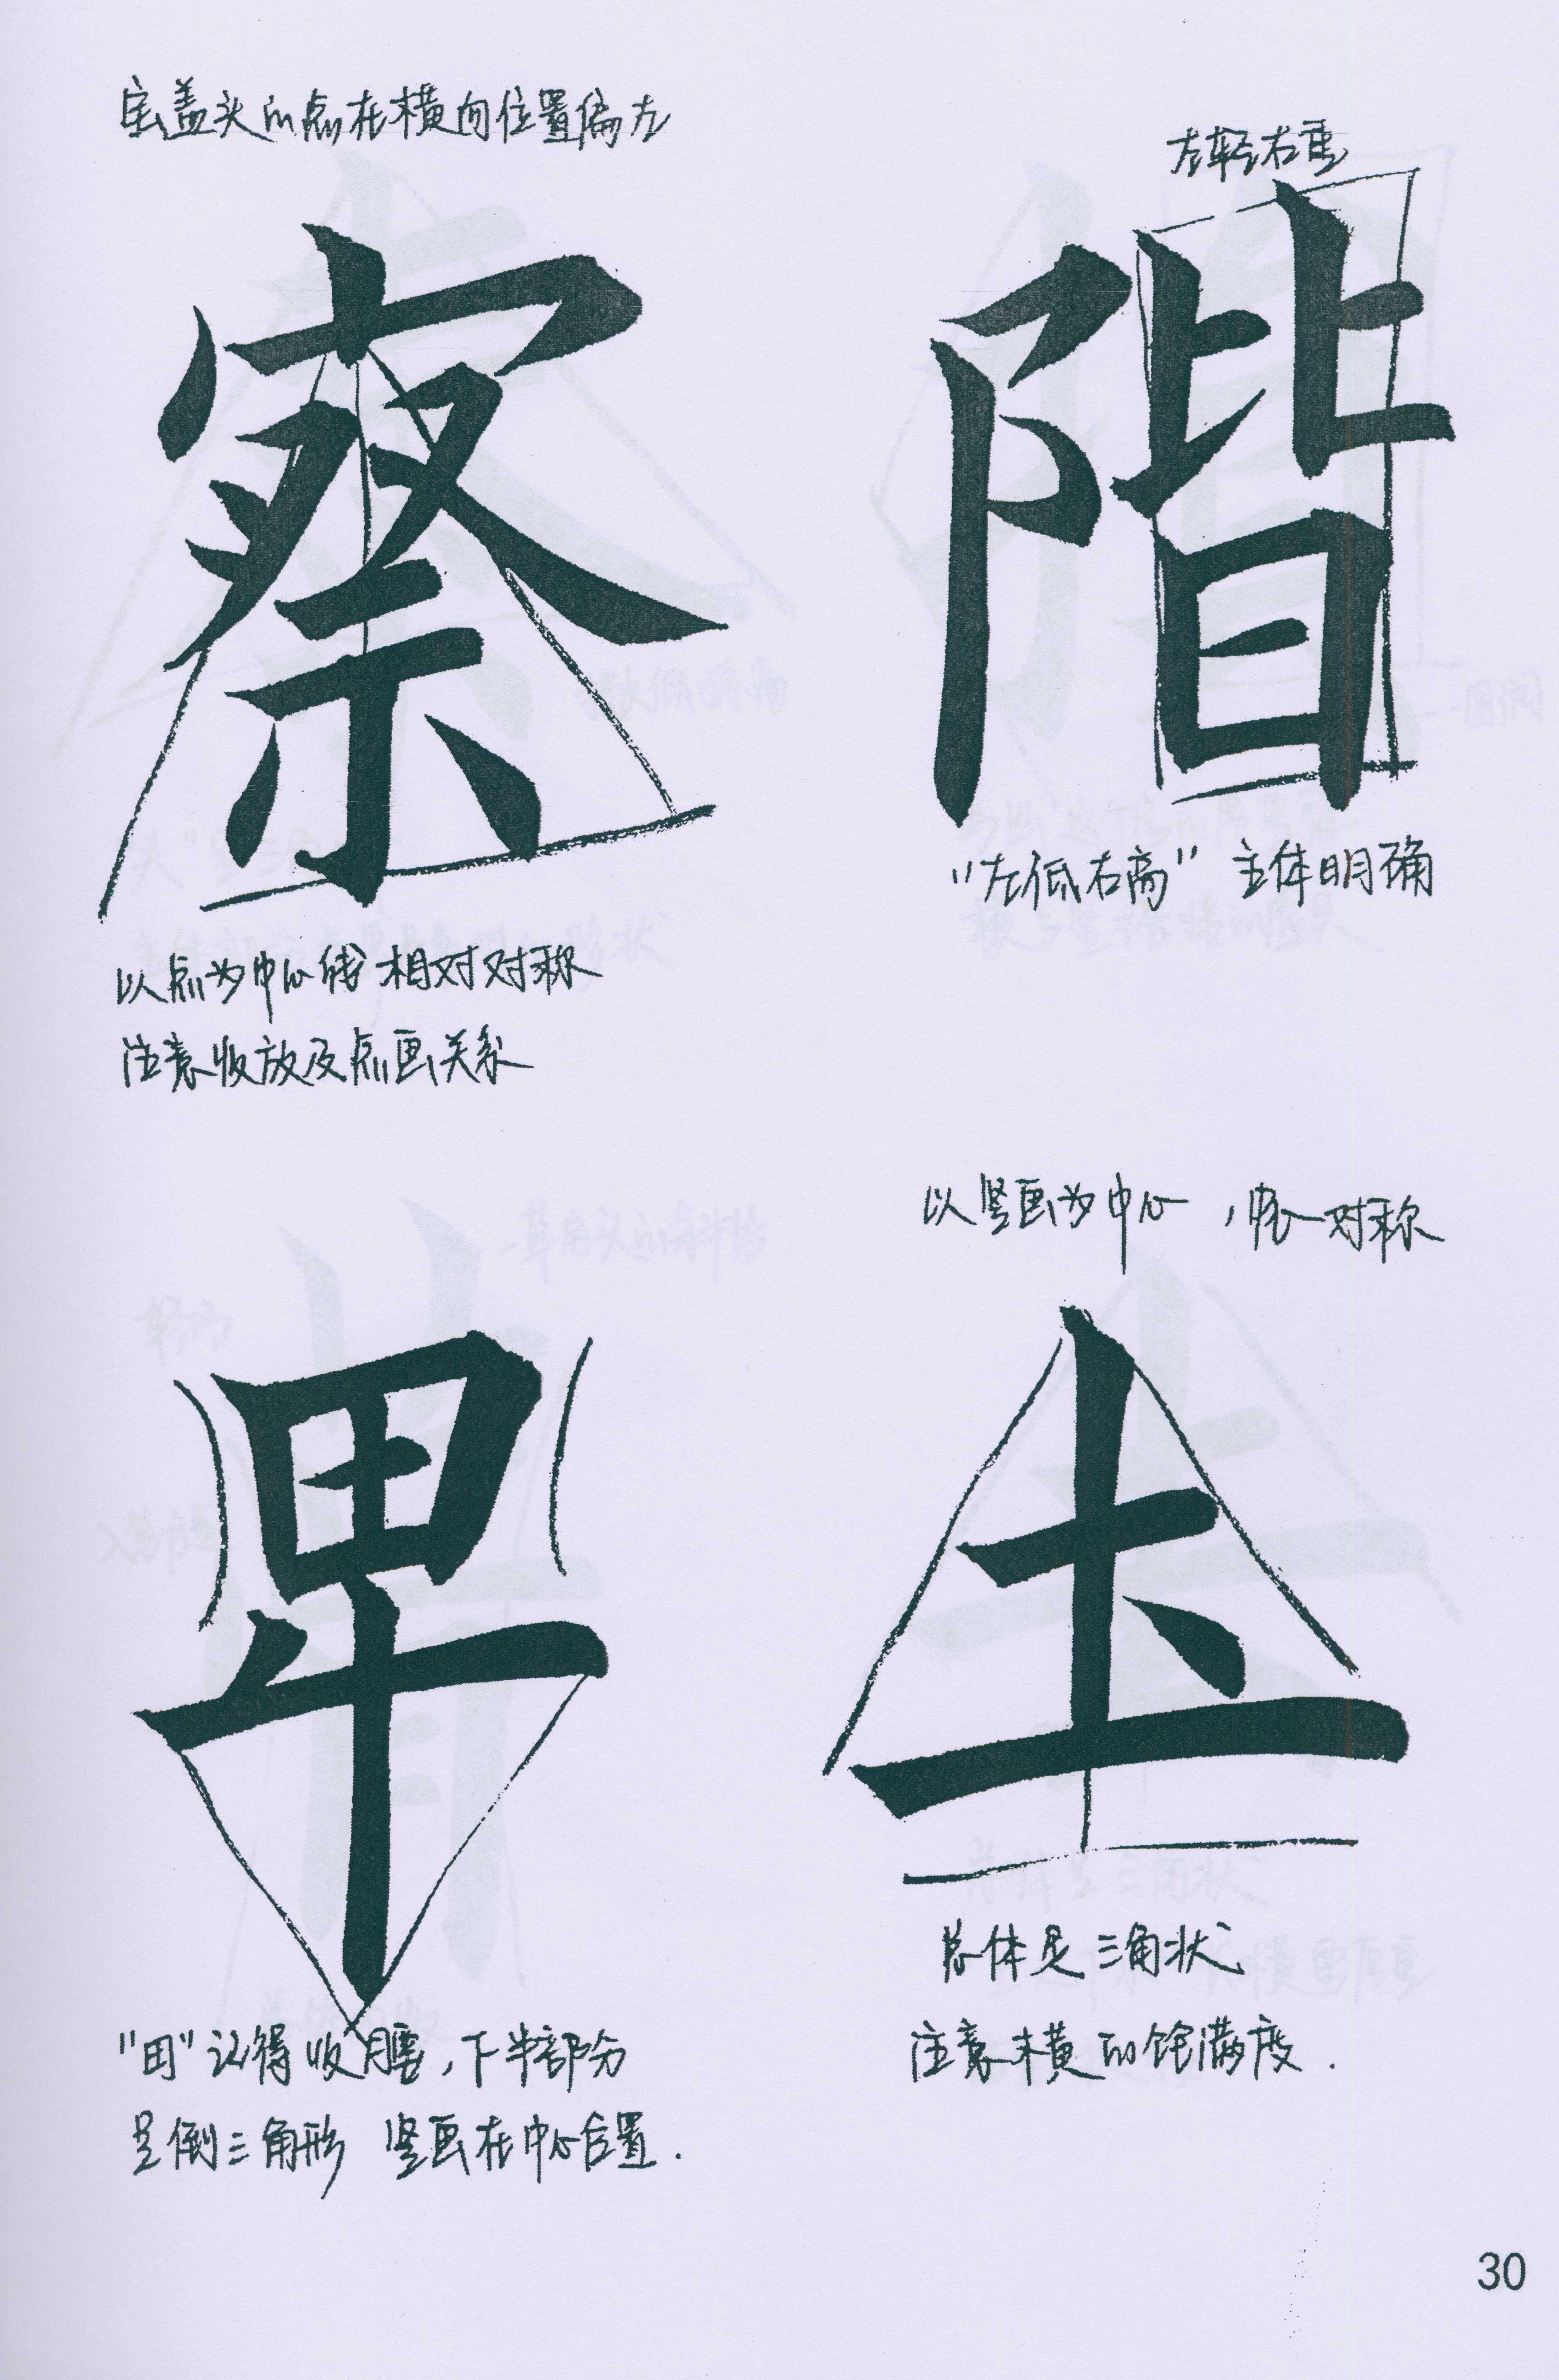 宝盖头的点在横向位置偏左
察
以点为中心线 相对对称
注意收放及点画关系
左轻右重
階
“左低右高” 主体明确
卑
“田”记得收腰，下半部分
呈倒三角形 竖画在中心位置.
以竖画为中心，中心对称
玉
总体呈三角状
注意末横的饱满度.
30